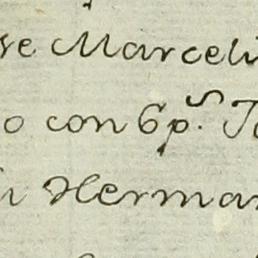 se Marceli
o con 6p.s To
n Herman